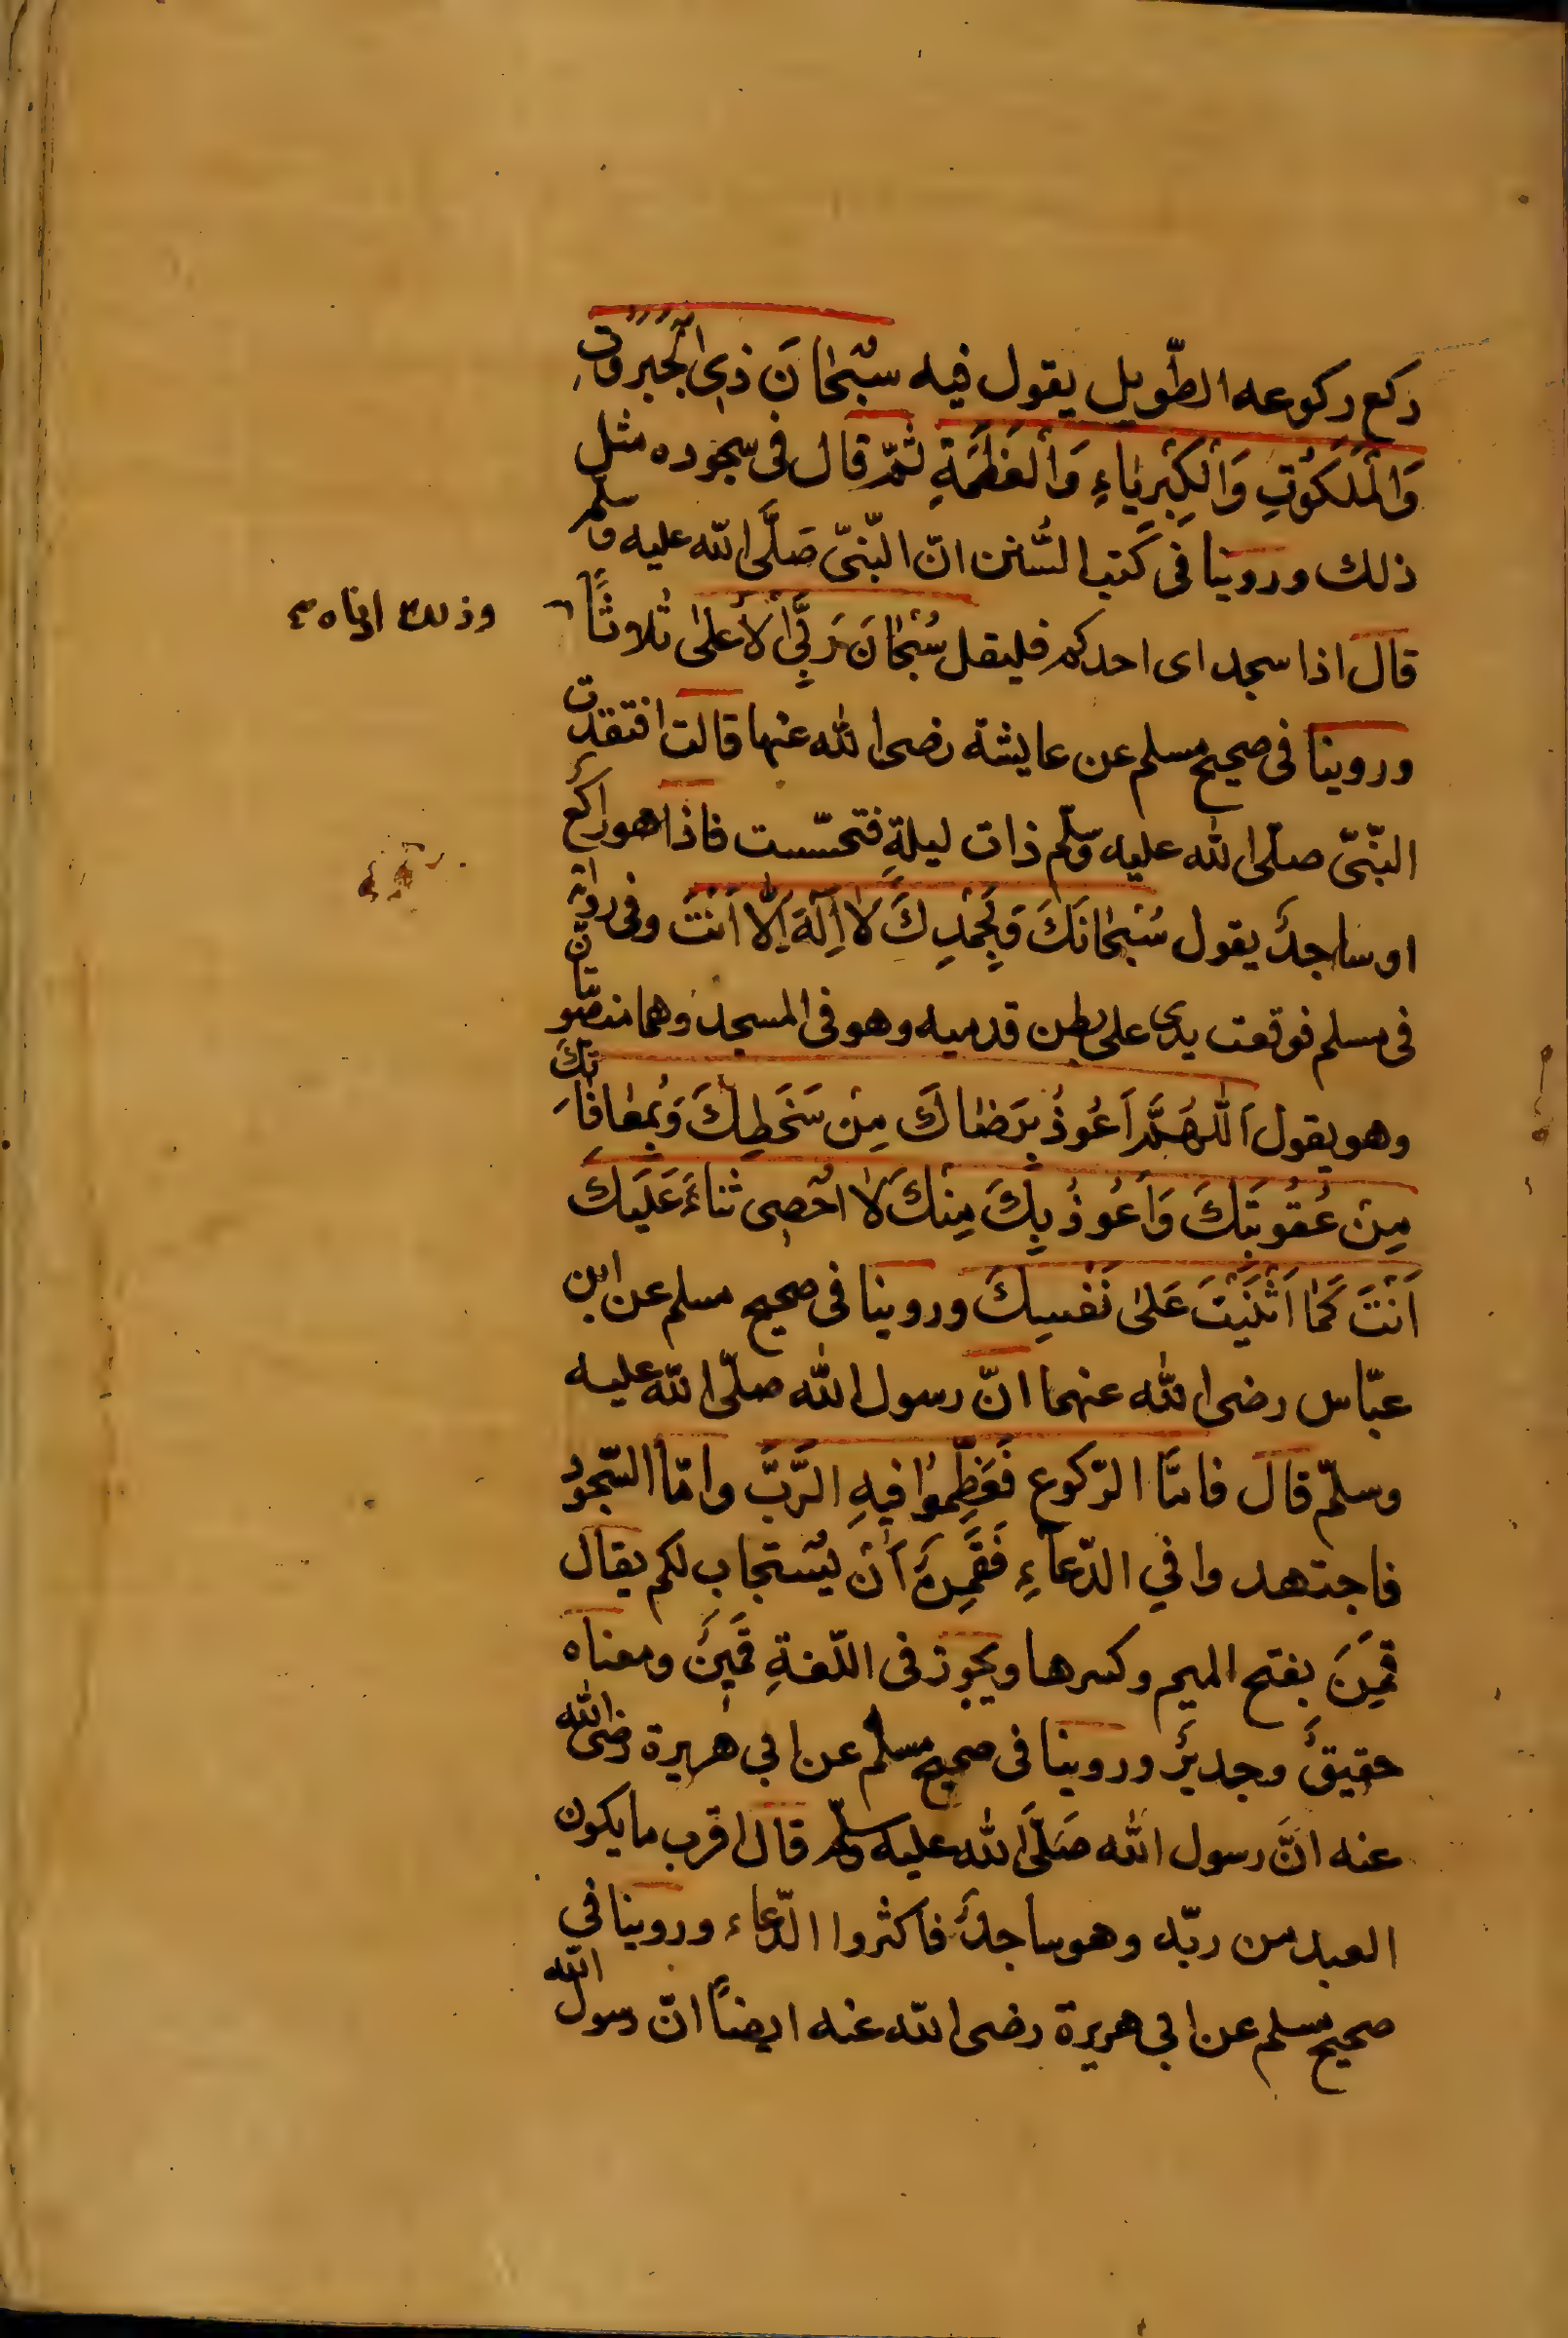 ركع ركوعه الطّويل يقول فيه سُبْحَانَ ذِي الْجَبَرُوتِ
وَالْمَلَكُوتِ وَالْكِبْرِيَاءِ وَالْعَظَمَةِ ثمّ قال فى سجوده مثل
ذلك وروينا فى كتب السّنن انّ النّبىّ صَلَّى الله عليه وسلّم
قال اذا سجد اى احدكم فليقل سُبْحَانَ رَبِّيَ الْاَعْلٰى ثلاثًا
وذلك ادناه صح
وروينا فى صحيح مسلم عن عايشة رضى الله عنها قالت افتقدت
النّبىّ صلّى الله عليه وسلّم ذات ليلةٍ فتحسّست فاذا هو راكع
او ساجدٌ يقول سُبْحَانَكَ وَبِحَمْدِكَ لَا اِلٰهَ اِلَّا اَنْتَ وفى رواية
فى مسلم فوقعت يدى على بطن قدميه وهو فى المسجد وهما منصوبتان
وهو يقول اَللّٰهُمَّ اَعُوذُ بِرِضَاكَ مِنْ سَخَطِكَ وَبِمُعَافَاتِكَ
مِنْ عُقُوبَتِكَ وَاَعُوذُ بِكَ مِنْكَ لَا اُحْصِى ثَنَاءً عَلَيْكَ
اَنْتَ كَمَا اَثْنَيْتَ عَلٰى نَفْسِكَ وروينا فى صحيح مسلم عن ابن
عبّاس رضى الله عنهما انّ رسول الله صلّى الله عليه
وسلّم قال فامّا الرّكوع فَعَظِّمُوا فِيهِ الرَّبَّ وامّا السّجود
فاجتهدوا في الدّعاءِ فَقَمِنٌ اَنْ يُسْتجاب لكم يقال
قمِنَ بفتح الميم وكسرها ويجوز فى اللّغةِ قَمِينٌ ومعناه
حقيقٌ وجديرٌ وروينا فى صحيح مسلم عن ابي هريرة رضى الله
عنه انَّ رسول الله صَلَّى الله عليه وسلّم قال اقرب ما يكون
العبد من ربّه وهو ساجدٌ فاكثروا الدّعاء وروينا في
صحيح مسلم عن ابي هريرة رضى الله عنه ايضًا انّ رسول الله